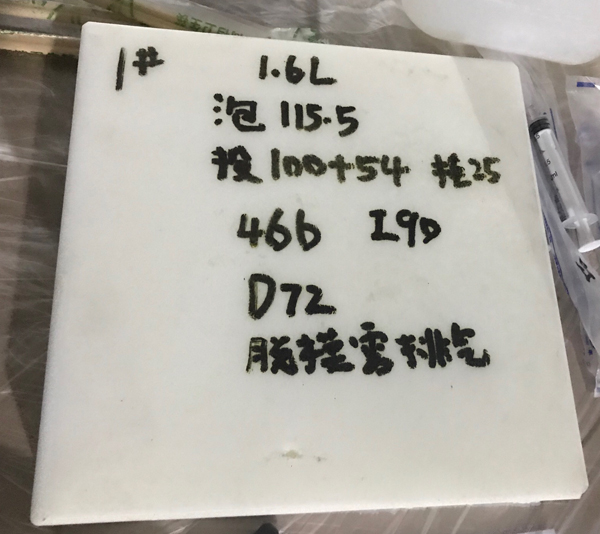 1# 1.6L
泡 115.5
投 100+54 耗25
466 I90
D72
脱模需排气